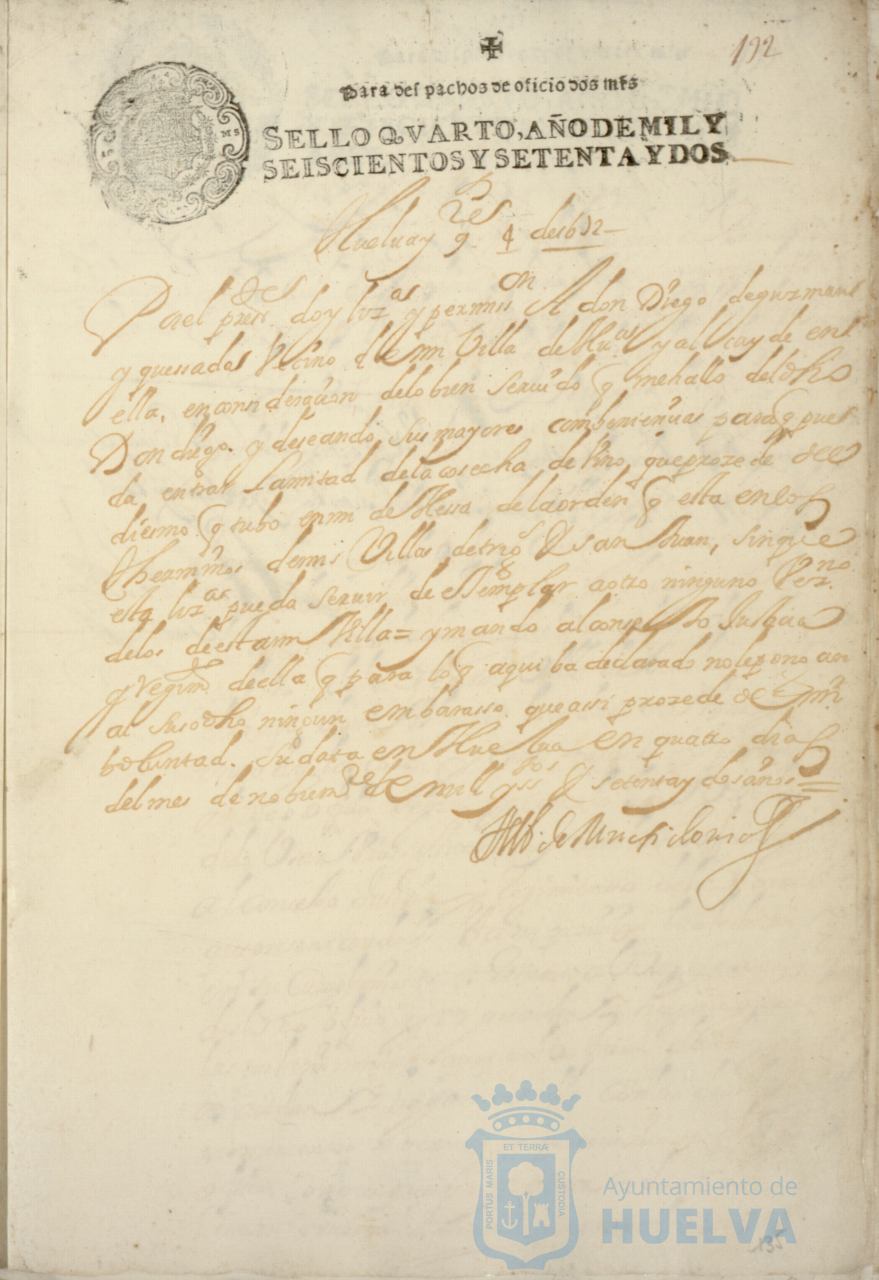 192
Para despachos de oficio dos mrs
SELLO QVARTO, AÑO DE MIL Y
SEISCIENTOS Y SETENTA Y DOS
Huelua y 9 4 de 1672
Por el press.te doy liz.as y permiss.on A don Diego de guzman
y quesada Vecino de mi Villa de y alcayde en
ella, en considerazion de lo bien seruido q me hallo del dho
Don diego y deseando sus mayores combenienzias para q pue
da entrar la mitad de la cosecha de bino que prozede del
diesmo q tubo en mi deHessa de la orden q esta en los
therminos de mis Villas de trig.s Y san Juan, sin que
esta liz.as pueda seruir de exsemplar a otro ninguno Vez.no
de los de esta mi Villa = y mando al consejo Justicia
y Regim.to de ella q para lo q aqui ba declarado no le pongan
al susodho ningun embarasso que assi prozede de mi
boluntad. Su data en Huelua en quatro dias
del mes de nobiem.re de mill y ss.os Y setenta y dos años =
ET TERRÆ
PORTUS MARIS
CUSTODIA
Ayuntamiento de
HUELVA
135